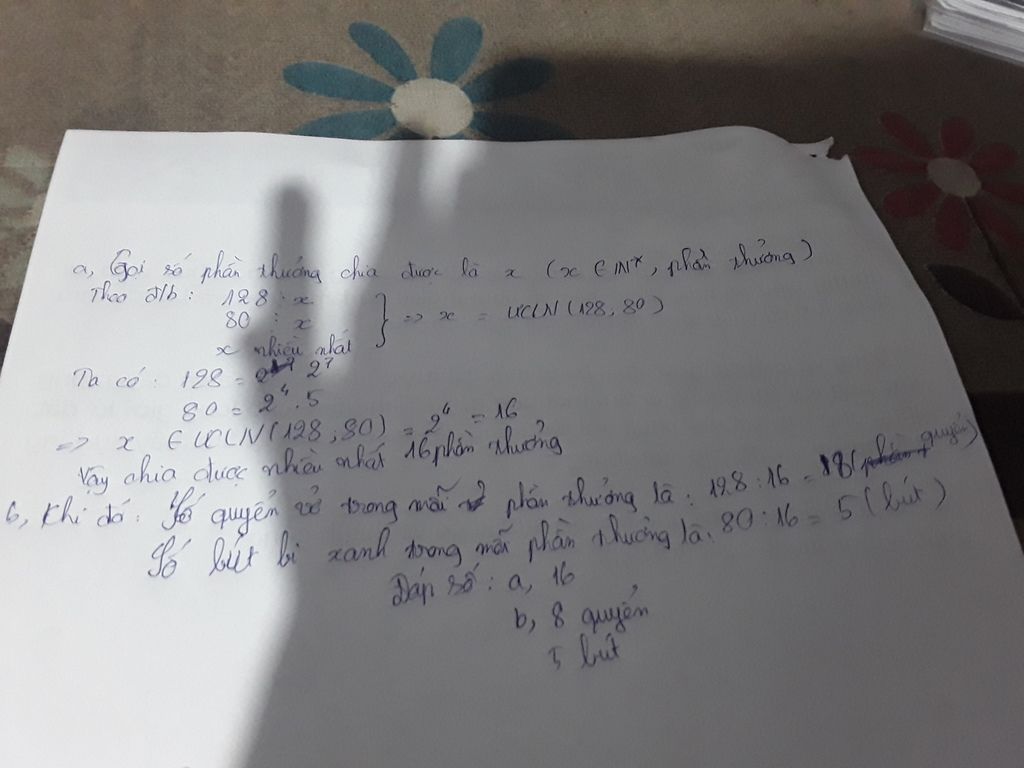 a, Gọi số phần thưởng chia được là x (x ∈ N*, phần thưởng)
Theo đ/b : 128 ⋮ x
80 ⋮ x
x nhiều nhất
} => x = ƯCLN (128, 80)
Ta có : 128 = 2⁷
80 = 2⁴ . 5
=> x ∈ ƯCLN (128, 80) = 2⁴ = 16
Vậy chia được nhiều nhất 16 phần thưởng
b, Khi đó : Số quyển vở trong mỗi phần thưởng là : 128 : 16 = 8 (quyển)
Số bút bi xanh trong mỗi phần thưởng là : 80 : 16 = 5 (bút)
Đáp số : a, 16
b, 8 quyển
5 bút